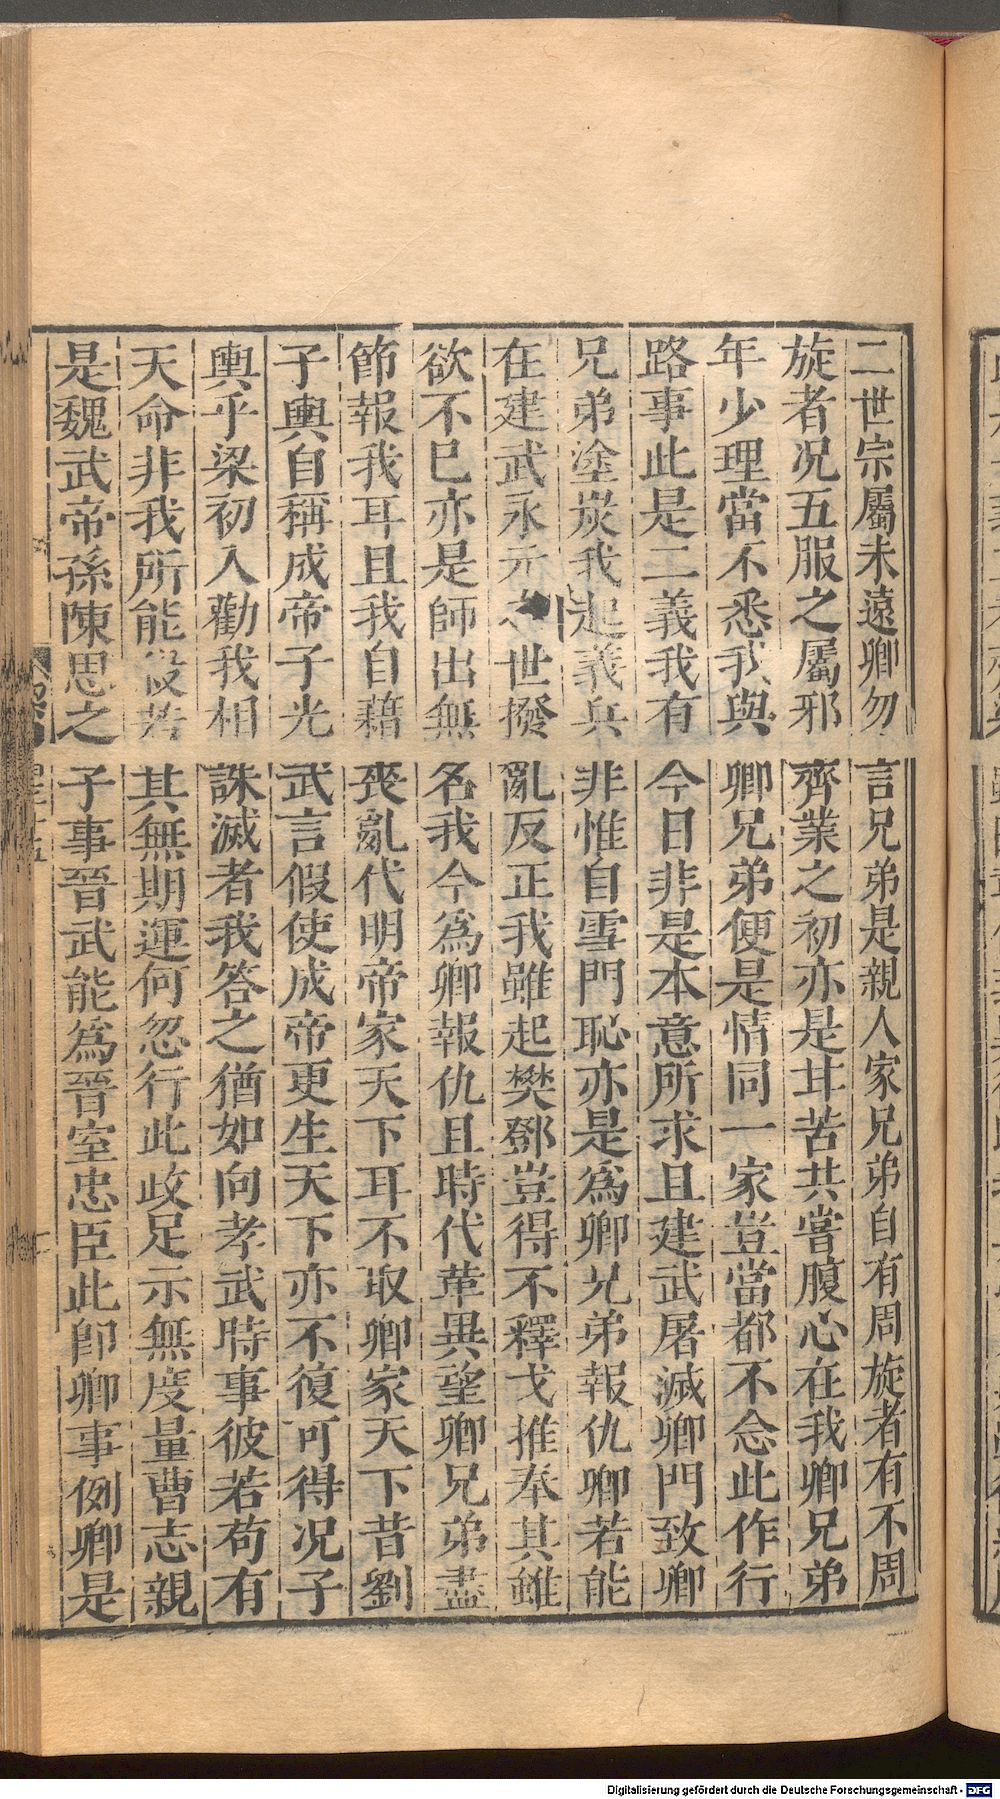 二世宗屬未遠卿勿言兄弟是親人家兄弟自有周旋者有不周
旋者况五服之屬邪齊業之初亦是甘苦共嘗腹心在我卿兄弟
年少理當不悉我與卿兄弟便是情同一家豈當都不念此作行
路事此是二義我有今日非是本意所求且建武屠滅卿門致卿
兄弟塗炭我起義兵非惟自雪門恥亦是爲卿兄弟報仇卿若能
在建武永元之世撥亂反正我雖起樊鄧豈得不釋戈推奉其雖
欲不已亦是師出無名我今爲卿報仇且時代革異望卿兄弟盡
節報我耳且我自藉喪亂代明帝家天下耳不取卿家天下昔劉
子輿自稱成帝子光武言假使成帝更生天下亦不復可得况子
輿乎梁初入勸我相誅滅者我答之猶如向孝武時事彼若苟有
天命非我所能殺若其無期運何忽行此政足示無度量曹志親
是魏武帝孫陳思之子事晉武能爲晉室忠臣此卽卿事例卿是
Digitalisierung gefördert durch die Deutsche Forschungsgemeinschaft - DFG